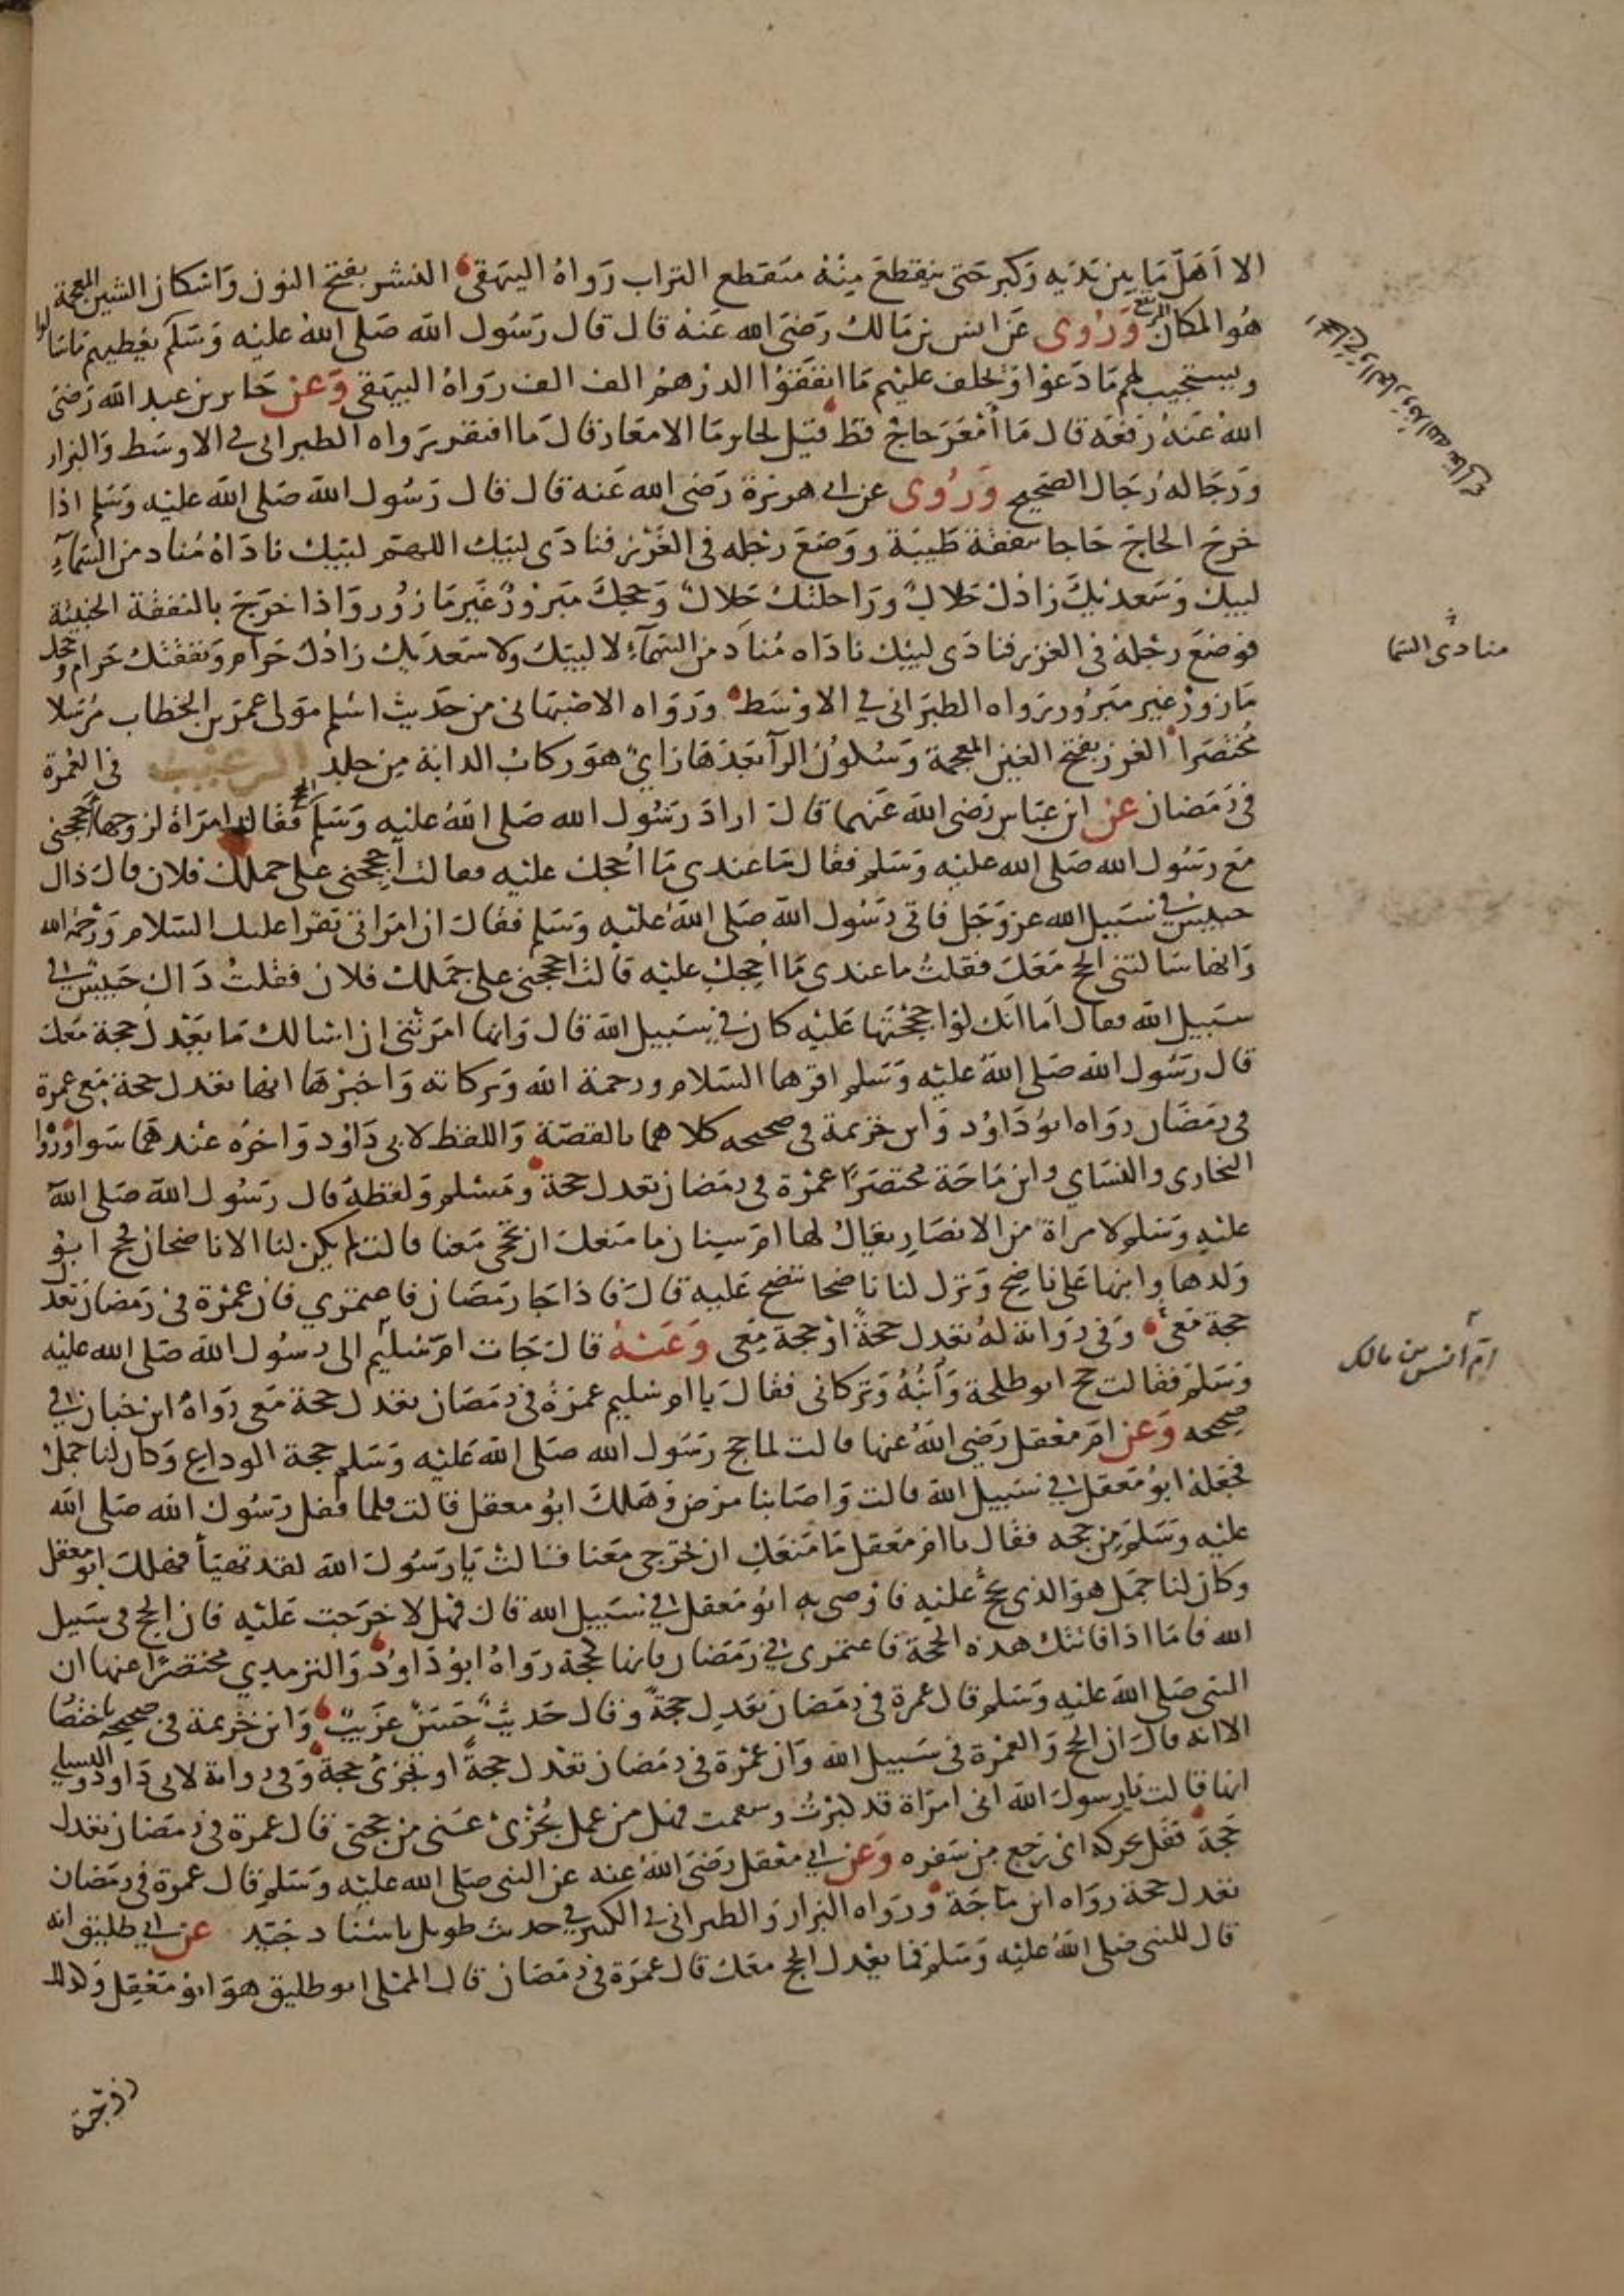 الا اهل ما بين يديه وكبر حتى ينقطع منه منقطع التراب رواه البيهقى النشز بفتح النون واسكان الشين المعجمة
هو المكان المرتفع وروى عن انس بن مالك رضى الله عنه قال قال رسول الله صلى الله عليه وسلم يعطيهم ما سالوا
ويستجيب لهم ما دعوا ويخلف عليهم ما انفقوا الدرهم الف الف رواه البيهقى وعن جابر بن عبد الله رضى
الله عنه رفعه قال ما أمعر حاج قط قيل لجابر ما الامعار قال ما افتقر رواه الطبرانى فى الاوسط والبزار
ورجاله رجال الصحيح وروى عن ابى هريرة رضى الله عنه قال قال رسول الله صلى الله عليه وسلم اذا
خرج الحاج حاجا بنفقة طيبة ووضع رجله فى الغرز فنادى لبيك اللهم لبيك ناداه مناد من السماء
لبيك وسعديك زادك حلال وراحلتك حلال وحجك مبرور غير مازور واذا خرج بالنفقة الخبيثة
فوضع رجله فى الغرز فنادى لبيك ناداه مناد من السماء لا لبيك ولا سعديك زادك حرام ونفقتك حرام وحجك
مازور غير مبرور رواه الطبرانى فى الاوسط ورواه الاصبهانى من حديث اسلم مولى عمر بن الخطاب مرسلا
مختصرا الغرز بفتح الغين المعجمة وسكون الرآ بعدها زاى هو ركاب الدابة من جلد الترغيب فى العمرة
فى رمضان عن ابن عباس رضى الله عنهما قال اراد رسول الله صلى الله عليه وسلم الحج فقالت امراة لزوجها احججنى
مع رسول الله صلى الله عليه وسلم فقال ما عندى ما أحجك عليه فقالت أحججنى على جملك فلان قال ذاك
حبيس فى سبيل الله عز وجل فاتى رسول الله صلى الله عليه وسلم فقال ان امراتى تقرا عليك السلام ورحمة الله
وانها سالتنى الحج معك فقلت ما عندى ما احجك عليه قالت احججنى على جملك فلان فقلت ذاك حبيس فى
سبيل الله فقال اما انك لو احججتها عليه كان فى سبيل الله قال وانها امرتنى ان اسالك ما يعدل حجة معك
قال رسول الله صلى الله عليه وسلم اقرها السلام ورحمة الله وبركاته واخبرها انها تعدل حجة معى عمرة
فى رمضان رواه ابو داود وابن خزيمة فى صحيحه كلاهما بالقصة واللفظ لابى داود واخره عندهما سوا ورواه
البخارى والنساي وابن ماجة مختصرا عمرة فى رمضان تعدل حجة ومسلم ولفظه قال رسول الله صلى الله
عليه وسلم لامراة من الانصار يقال لها ام سنان ما منعك ان تحجى معنا قالت لم يكن لنا الا ناضحان فحج ابو
ولدها وابنها على ناضح وترك لنا ناضحا ننضح عليه قال فاذا جا رمضان فاعتمرى فان عمرة فى رمضان تعدل
حجة معى وفى رواية له تعدل حجة او حجة معى وعنه قال جات ام سليم الى رسول الله صلى الله عليه
وسلم فقالت حج ابو طلحة وابنه وتركانى فقال يا ام سليم عمرة فى رمضان تعدل حجة معى رواه ابن حبان فى
صحيحه وعن ام معقل رضى الله عنها قالت لما حج رسول الله صلى الله عليه وسلم حجة الوداع وكان لنا جمل
فجعله ابو معقل فى سبيل الله قالت واصابنا مرض وهلك ابو معقل قالت فلما قفل رسول الله صلى الله
عليه وسلم من حجه فقال يا ام معقل ما منعك ان تخرجى معنا قالت يا رسول الله لقد تهيأ فهلك ابو معقل
وكان لنا جمل هو الذى نحج عليه فاوصى به ابو معقل فى سبيل الله قال فهلا خرجت عليه فان الحج فى سبيل
الله فاما اذا فاتتك هذه الحجة فاعتمرى فى رمضان فانها كحجة رواه ابو داود والترمذي مختصرا عنها ان
النبى صلى الله عليه وسلم قال عمرة فى رمضان تعدل حجة وقال حديث حسن غريب وابن خزيمة فى صحيحه باختصا
الا انه قال ان الحج والعمرة فى سبيل الله وان عمرة فى رمضان تعدل حجة او تجزى حجة وفى رواية لابى داود والنسائى
انها قالت يا رسول الله انى امراة قد كبرت وسقمت فهل من عمل يجزى عنى من حجتى قال عمرة فى رمضان تعدل
حجة قفل محركة اى رجع من سفره وعن ابى معقل رضى الله عنه عن النبى صلى الله عليه وسلم قال عمرة فى رمضان
تعدل حجة رواه ابن ماجة ورواه البزار والطبرانى فى الكبير فى حديث طويل باسناد جيد عن ابى طليق انه
قال للنبى صلى الله عليه وسلم فما يعدل الحج معك قال عمرة فى رمضان قال المملى ابو طليق هو ابو معقل وكذلك
زوجته
منادى السما
ام انس بن مالك